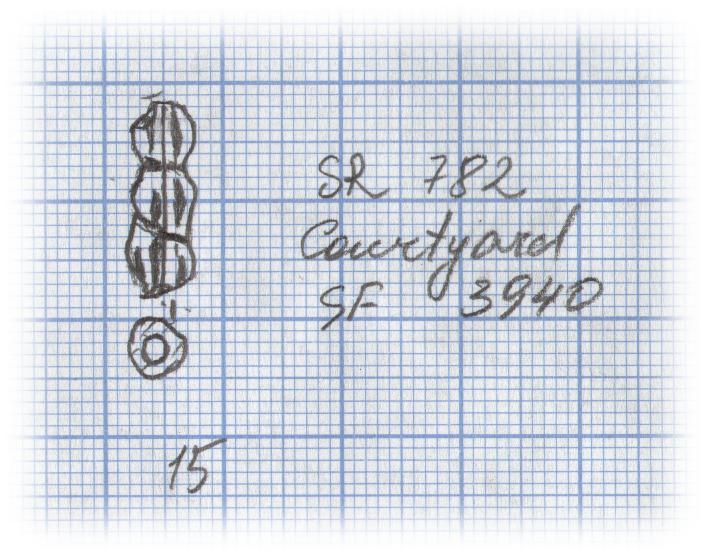 SR 782
Courtyard
SF 3940
15